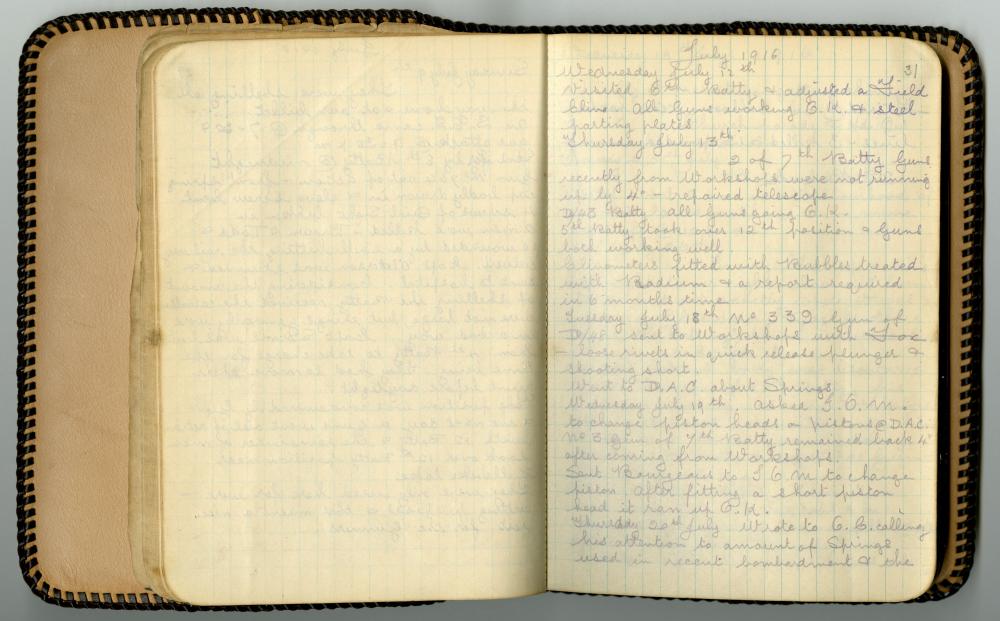 July 1916
31
Wednesday July 12th
Visited 6th Batty & adjusted a Field
Clino. All Guns working O.K. & steel
parting plates.
Thursday July 13th
2 of 7th Batty Guns
recently from Workshops were not running
up by 4" - repaired telescope
D/48 Batty all Guns going O.K.
5th Batty took over 12th position & Guns
both working well
Clinometers fitted with Bubbles treated
with Radium & a report required
in 6 months time
Tuesday July 18th No 339 Gun of
D/48 sent to Workshops with
- loose rivets in quick release plunger &
shooting short.
Went to D.A.C. about Springs
Wednesday July 19th, asked I.O.M.
to change piston heads or pistons @ D.A.C.
No 3 Gun of 7th Batty remained back 4"
after coming from Workshops.
Sent Bourgeous to I O M to change
piston after fitting a short piston
head it ran up O.K.
Thursday 20th July Wrote to O.C. calling
his attention to amount of Springs
used in recent bombardment & the